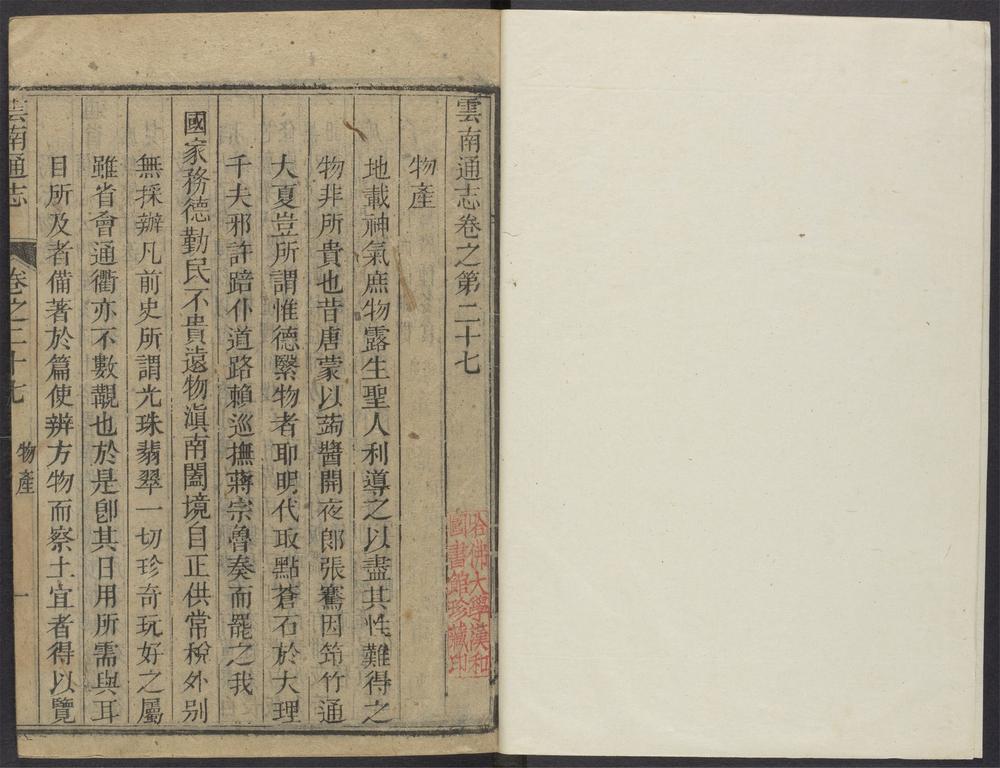 雲南通志卷之第二十七
物產
地載神氣庶物露生聖人利導之以盡其性難得之
物非所貴也昔唐蒙以蒟醬開夜郎張騫因笻竹通
大夏豈所謂惟德繄物者耶明代取點蒼石於大理
千夫邪許踣仆道路賴巡撫蔣宗魯奏而罷之我
國家務德勤民不貴遠物滇南闔境自正供常稅外别
無採辦凡前史所謂光珠翡翠一切珍奇玩好之屬
雖省會通衢亦不數覯也於是卽其日用所需與耳
目所及者備著於篇使辨方物而察土宜者得以覽
雲南通志 卷之二十七 物產 一
哈佛大學漢和
圖書館珍藏印